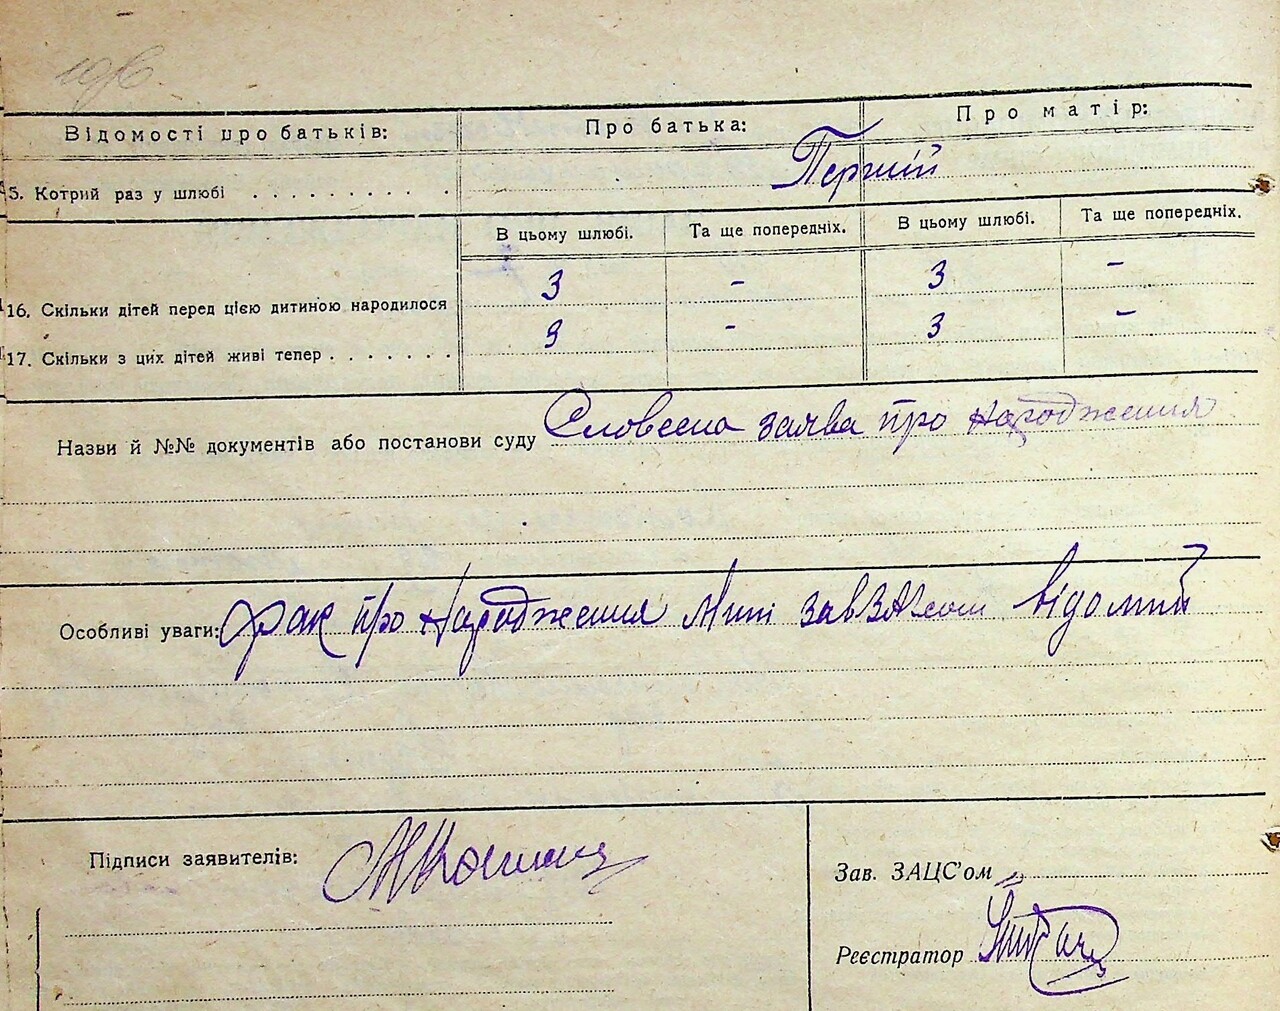 Відомості про батьків: Про батька: Про матір:
5. Котрий раз у шлюбі . . . . . . . . Перший
В цьому шлюбі. Та ще попередніх. В цьому шлюбі. Та ще попередніх.
16. Скільки дітей перед цією дитиною народилося 3 - 3 -
17. Скільки з цих дітей живі тепер . . . . . . . 3 - 3 -
Назви й №№ документів або постанови суду Словесна заява про народження
Особливі уваги: Факт про народження Мині завЗАГСом відомий
Підписи заявителів:
Зав. ЗАЦС'ом
Реєстратор